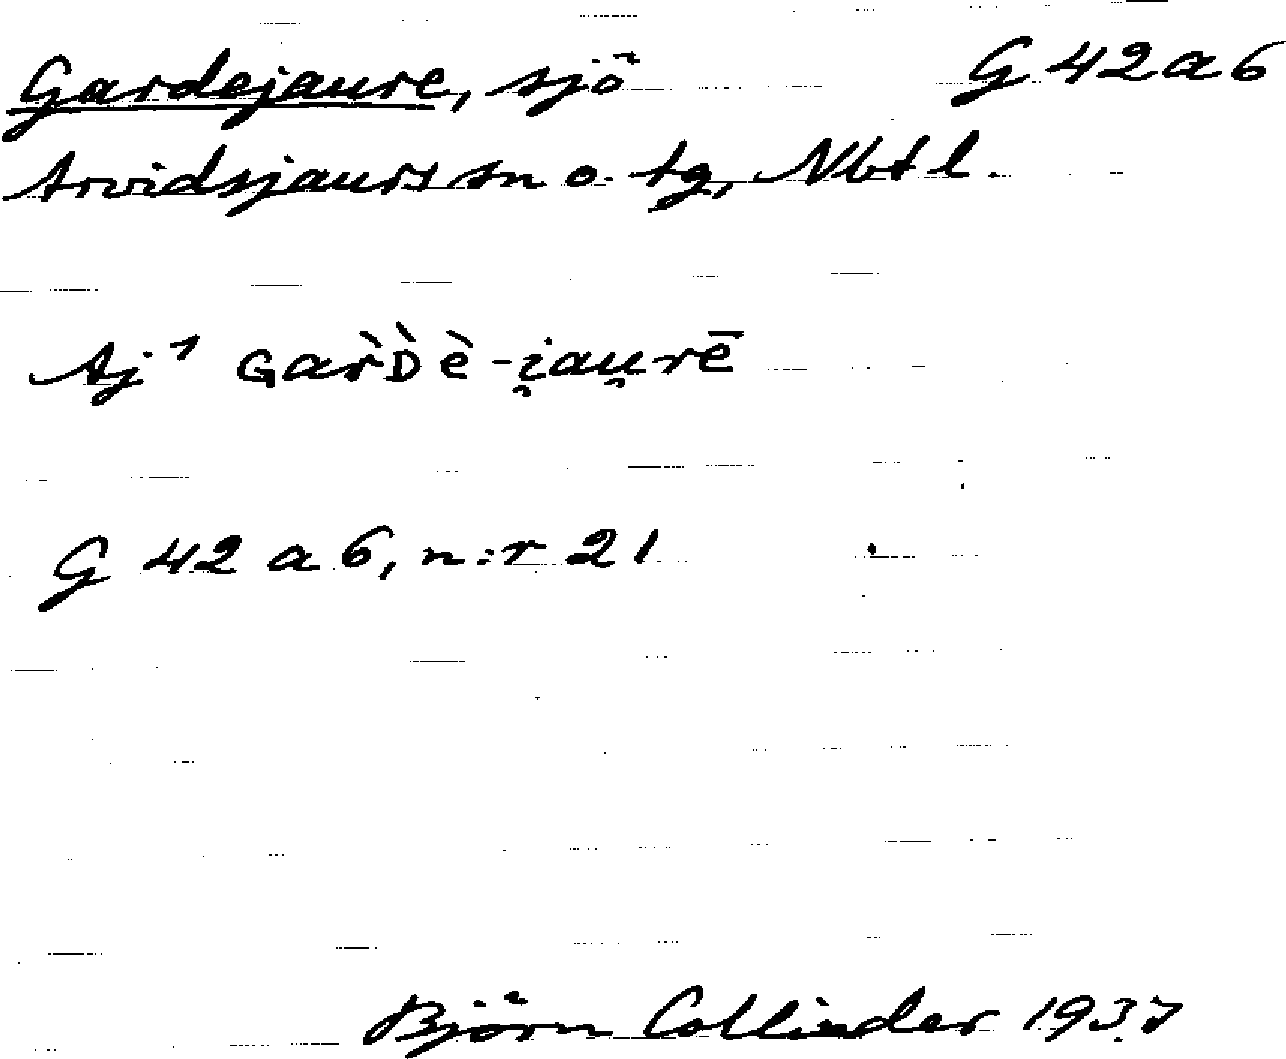 Gardejaure, sjö G 42 a 6
Arvidsjaurs sn o. tg, Nbtl.
Aj¹ ɢar̀ᴅ̀è-i̯au̯rē
G 42 a 6, n:r 21
Björn Collinder 1937